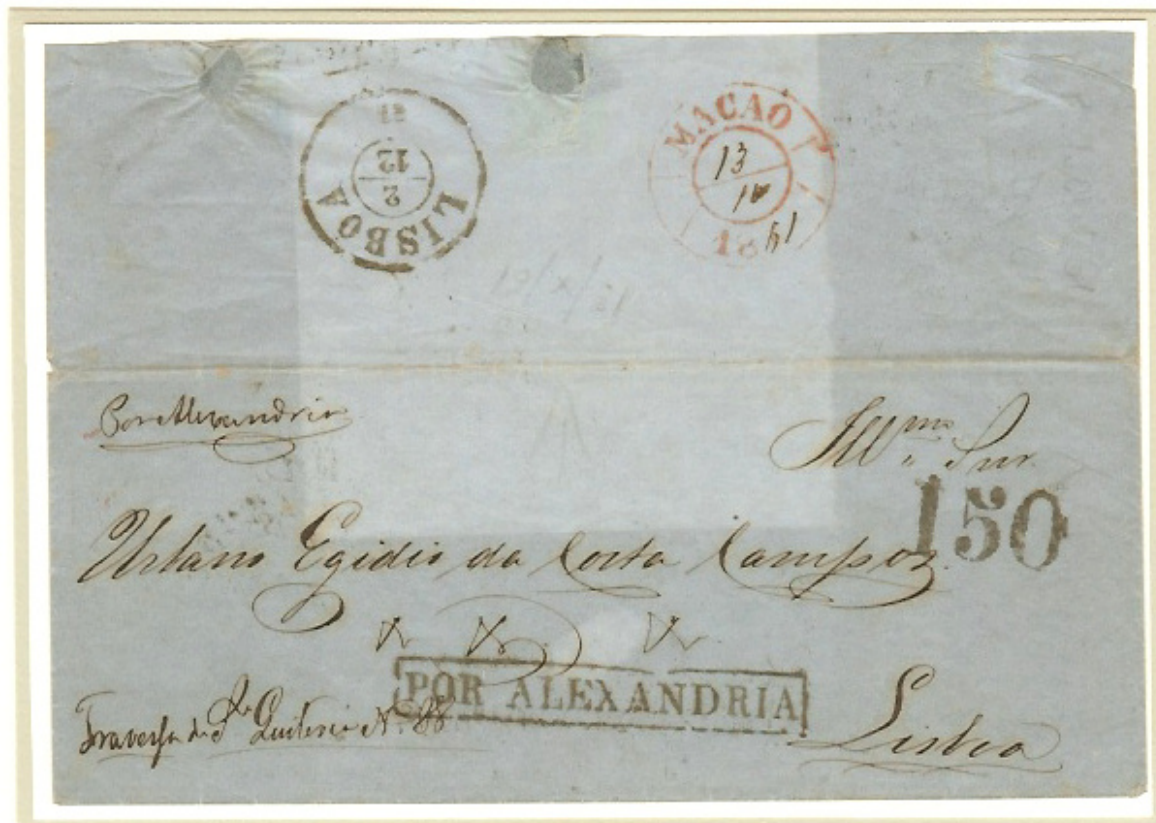 LISBOA
2
12
MACAO
13
10
1861
Por Alexandria
Illmo. Snr.
150
Urbano Egidio da Costa Campos
&. &. &.
POR ALEXANDRIA
Travessa de Sta. Quiteria No. 38
Lisboa